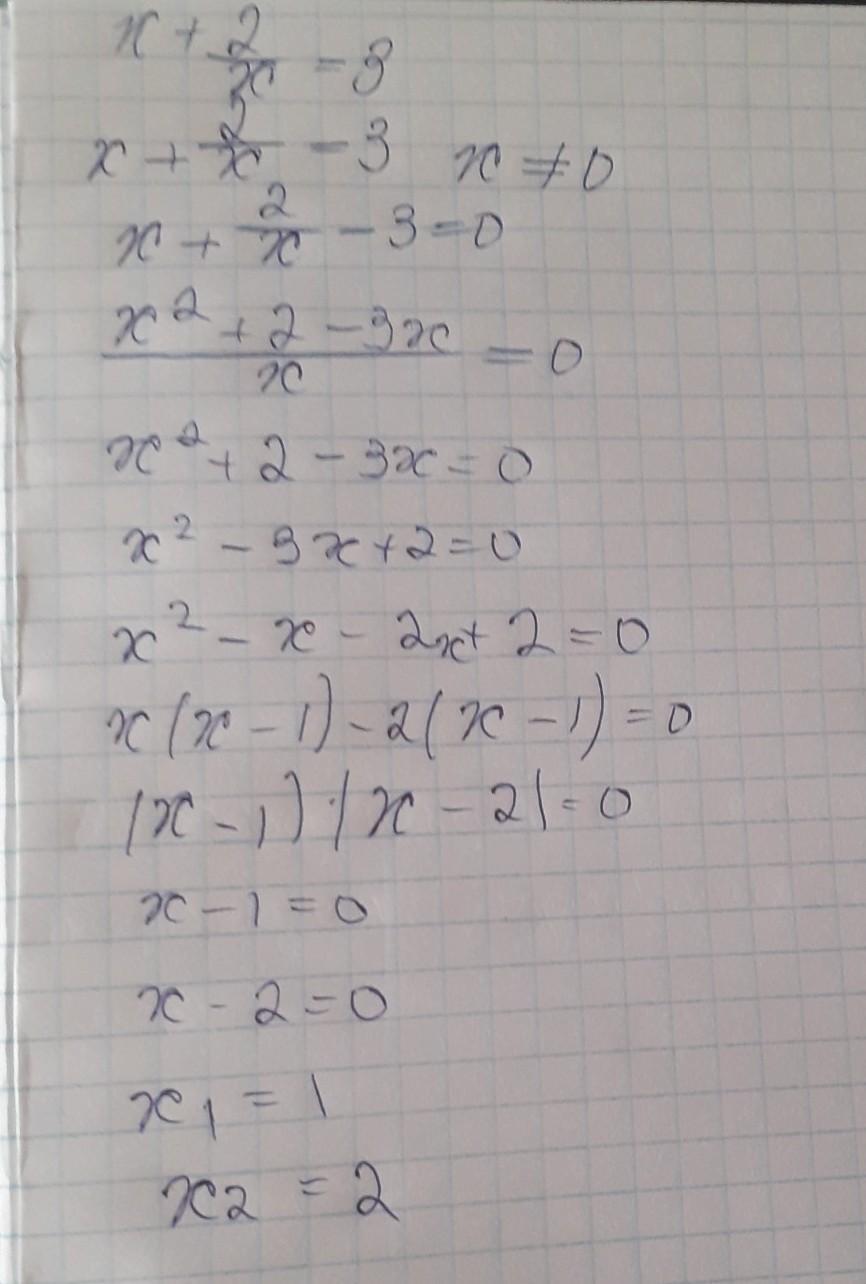 x + 2/x = 3
x + 2/x = 3 x ≠ 0
x + 2/x - 3 = 0
(x² + 2 - 3x)/x = 0
x² + 2 - 3x = 0
x² - 3x + 2 = 0
x² - x - 2x + 2 = 0
x(x - 1) - 2(x - 1) = 0
(x - 1)·(x - 2) = 0
x - 1 = 0
x - 2 = 0
x₁ = 1
x₂ = 2